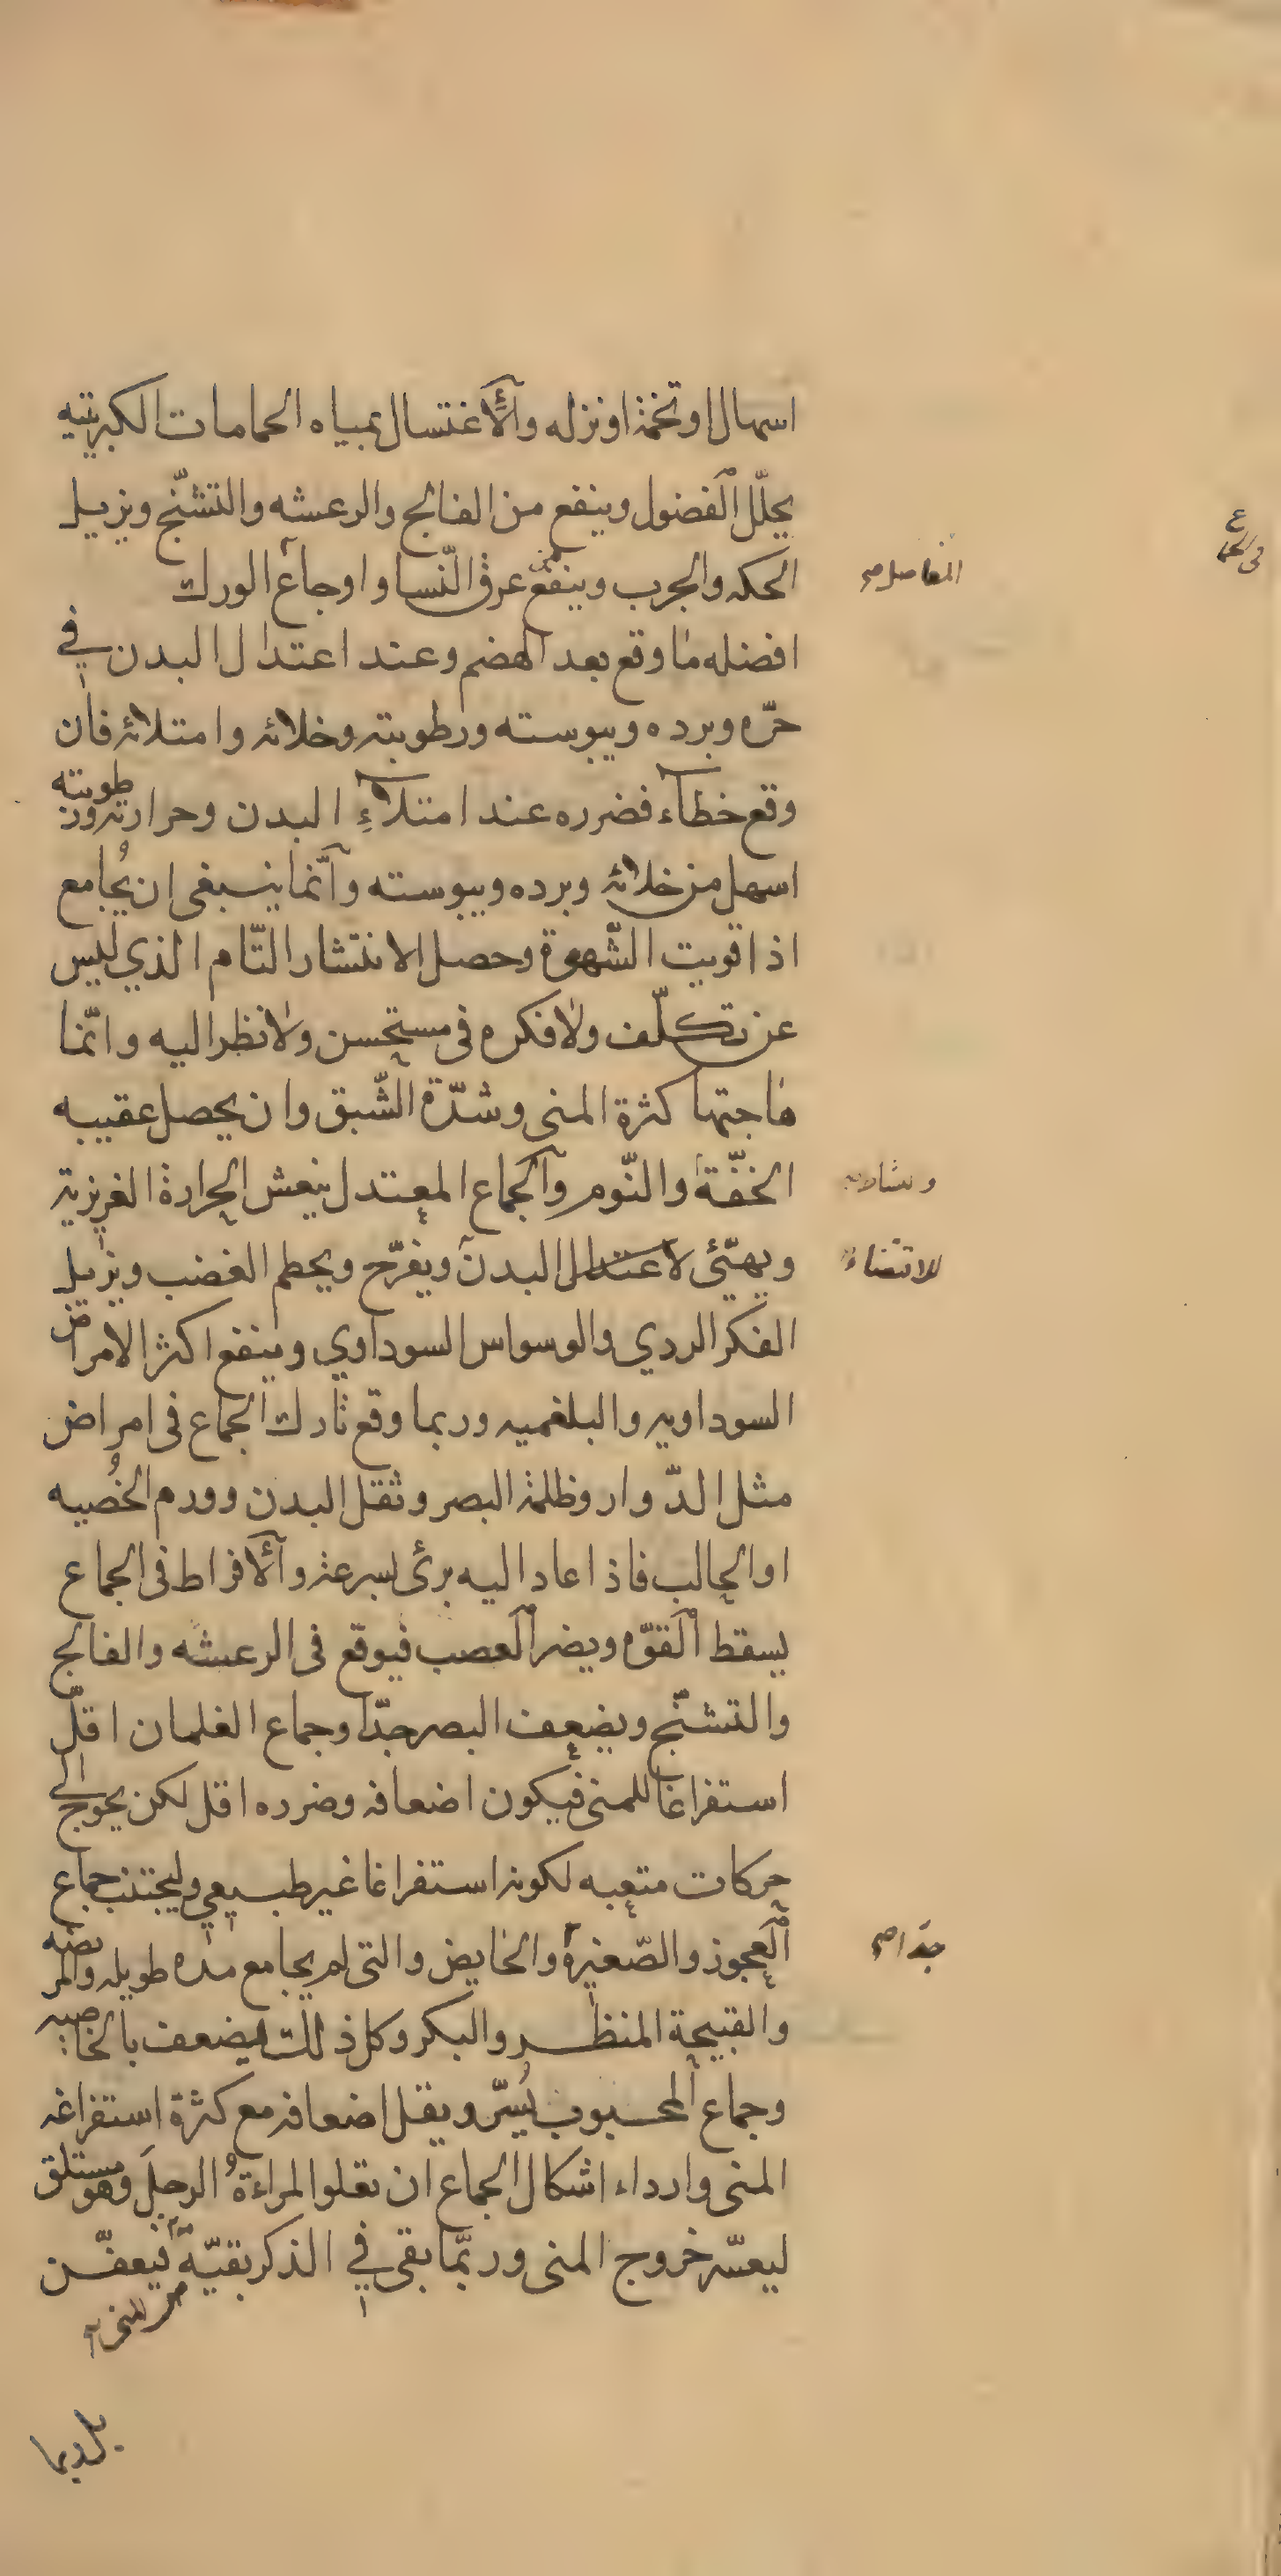 اسهال او تخمة او نزله والاغتسال بمياه الحمامات الكبريتيه
يحلّل الفضول وينفع من الفالج والرعشه والتشنّج ويزيل
الحكه والجرب وينفع من عرق النّسا واوجاع الورك
المفاصل صح
افضله ما وقع بعد الهضم وعند اعتدال البدن في
حرّه وبرده ويبوسته ورطوبته وخلائه وامتلائه فان
وقع خطآء فضرره عند امتلآءِ البدن وحرارته ورطوبته
اسهل من خلائه وبرده ويبوسته وانّما ينبغى ان يُجامع
اذا قويت الشّهوة وحصل الانتشار التّام الذي ليس
عن تكلّف ولا فكره فى مستحسن ولا نظر اليه وانّما
هاجتها كثرة المنى وشدّة الشّبق وان يحصل عقيبه
الخفّة والنّوم والجماع المعتدل ينعش الحرارة الغريزية
ويهيّئ لاعتدال البدن ويفرّح ويحطم الغضب ويزيل
للاغتذاء
الفكر الردي والوسواس السوداوي وينفع اكثر الامراض
السوداويه والبلغميه وربما وقع تارك الجماع فى امراض
مثل الدّوار وظلمة البصر وثقل البدن وورم الخُصيه
او الحالب فاذا عاد اليه برئ بسرعة والافراط فى الجماع
يسقط القوّه ويضر العصب فيوقع فى الرعشه والفالج
والتشنّج ويضعف البصر جدّا وجماع الغلمان اقلّ
استفراغا للمنى فيكون اضعافه وضرره اقل لكن يحوج الى
حركات متعبه لكونه استفراغا غير طبيعي وليجتنب جماع
العجوز والصّغيرة والحايض والتى لم يجامع مده طويله والمريضه
جدّا صح
والقبيحة المنظر والبكر وكل ذلك يضعف بالخاصيه
وجماع المحبوب يُسرّ ويقل اضعافه مع كثرة استفراغه
المنى وارداء اشكال الجماع ان تعلوا المراءةُ الرجلَ وهو مستلق
ليعسّر خروج المنى وربّما بقى في الذكر بقيّة فيعفّن
من المنى
بل ربما